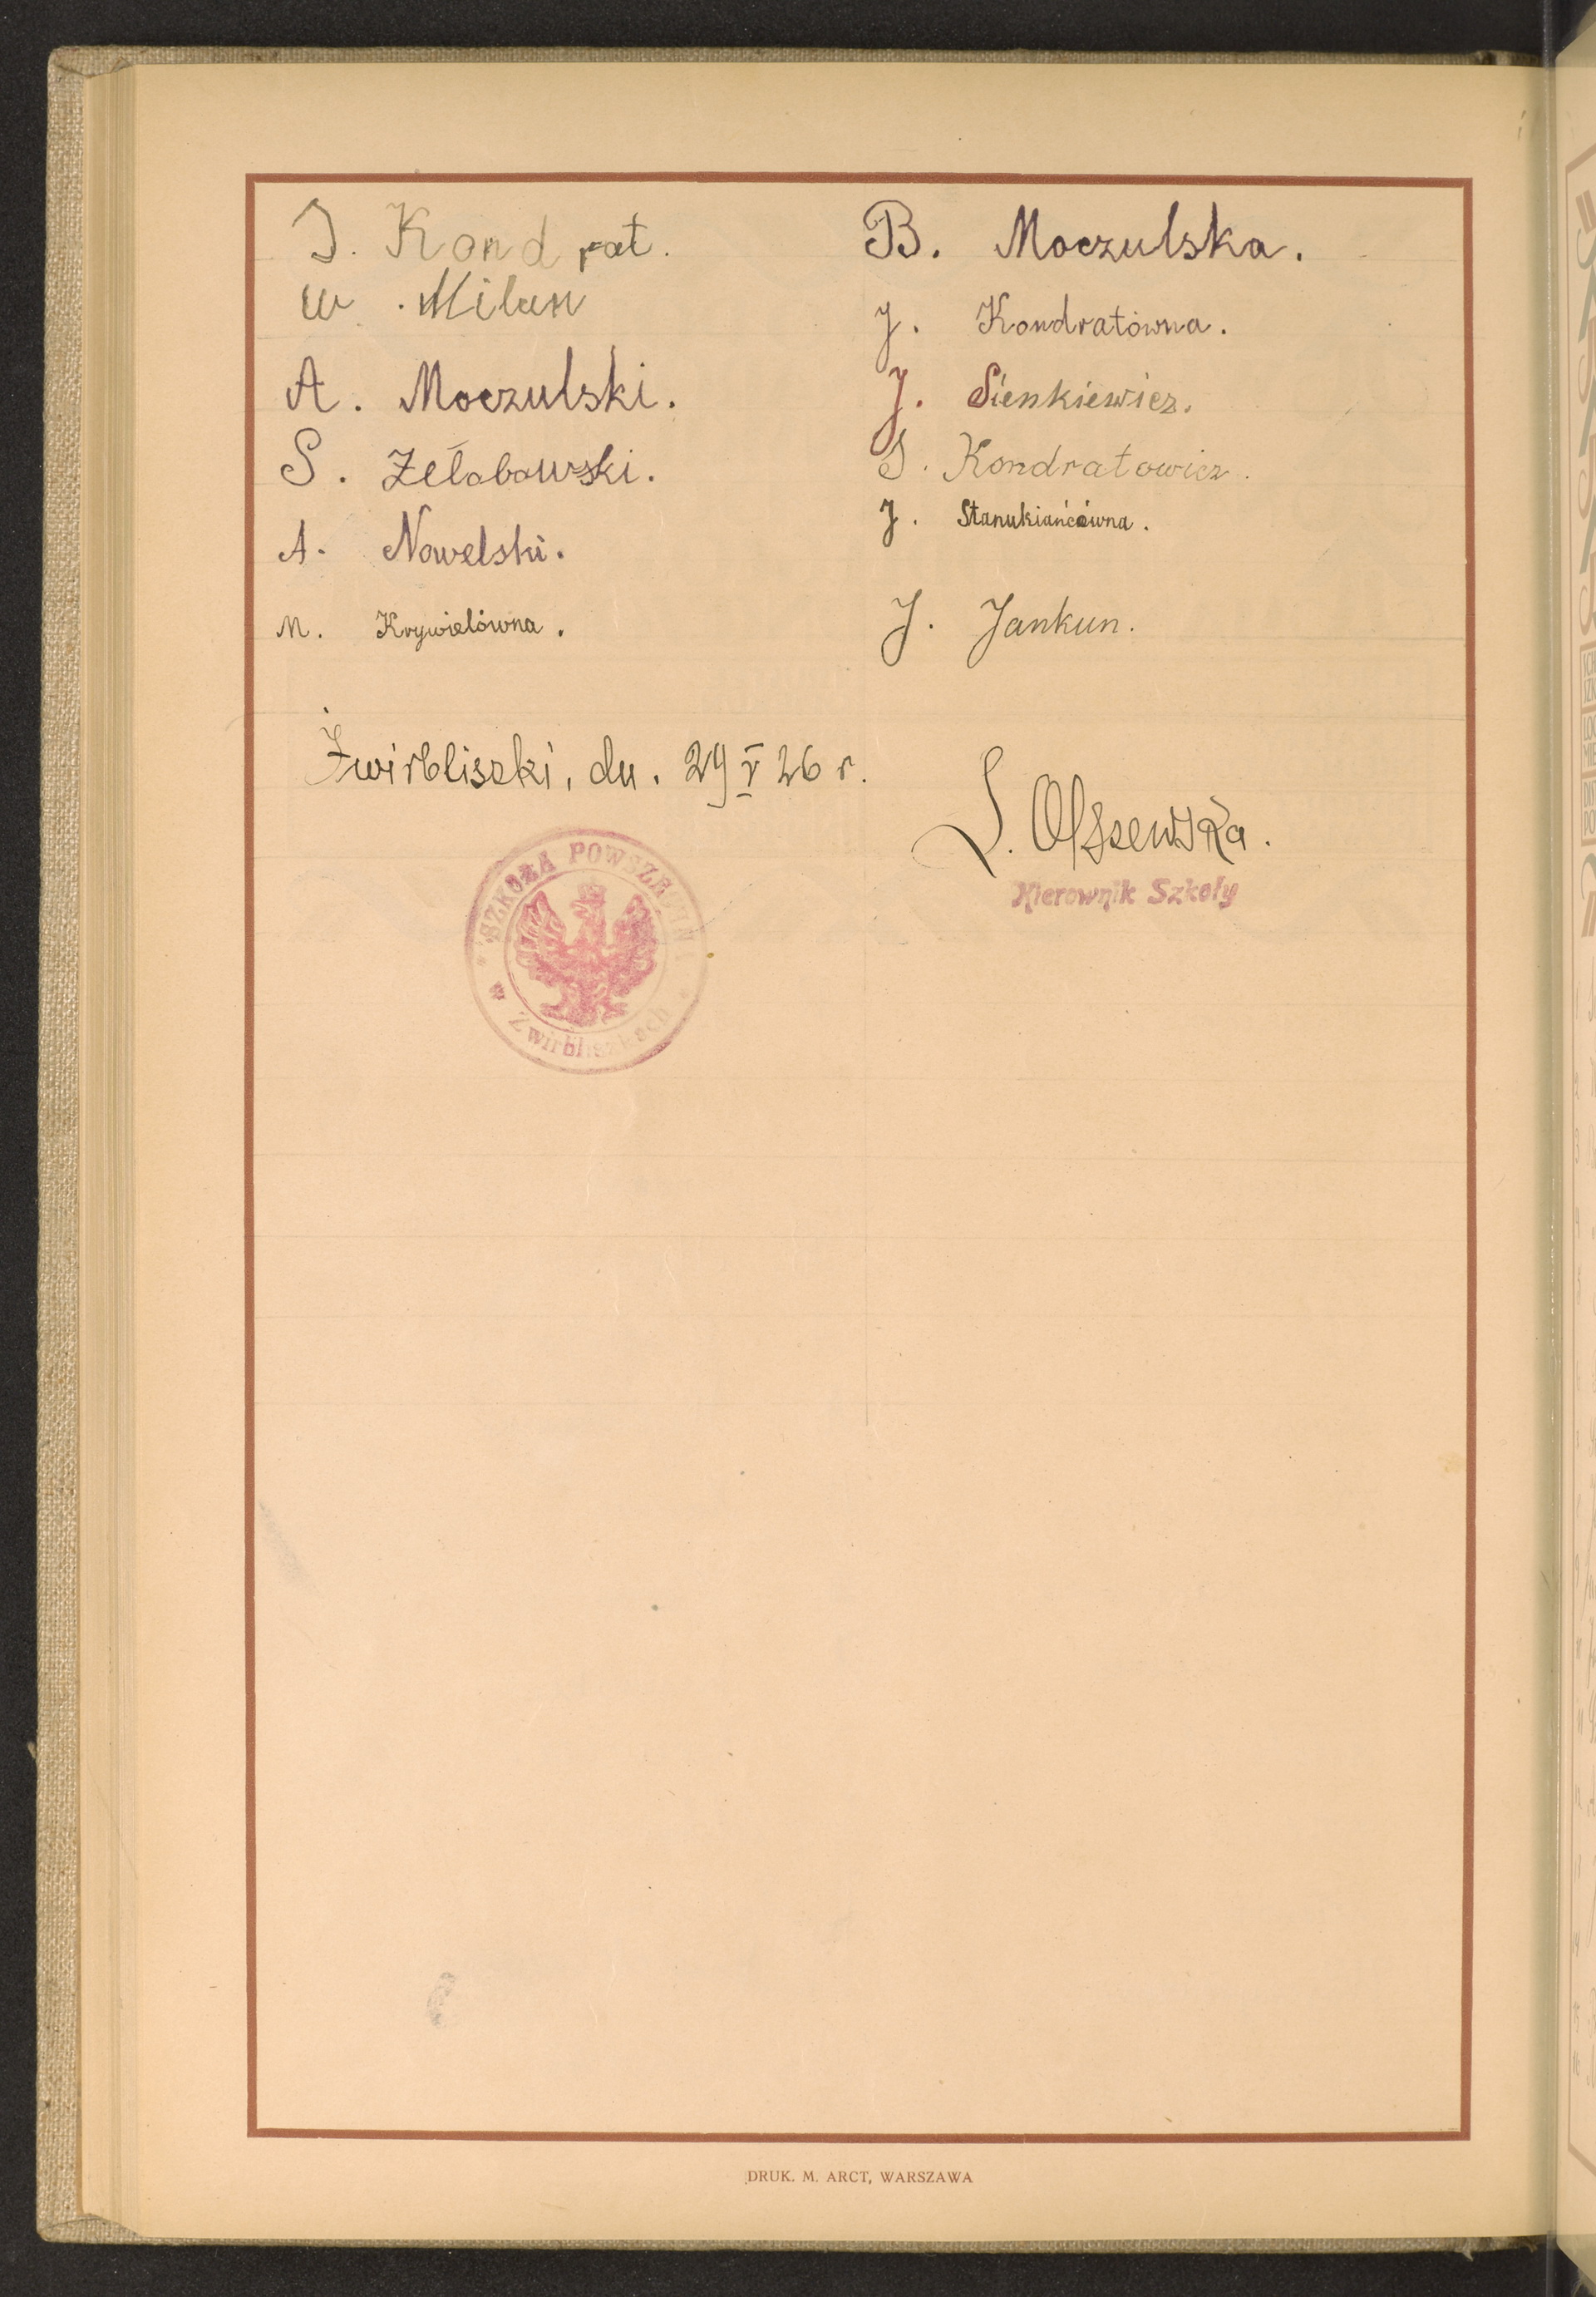 J. Kondrat.
W. Milun
A. Moczulski.
S. Żełobowski.
A. Nowelski.
M. Krywielówna.
B. Moczulska.
J. Kondratówna.
J. Sienkiewicz.
S. Kondratowicz.
J. Stanukiańcówna.
J. Jankun.
Żwirbliszki, dn. 29 V 26 r.
S. Olszewska.
Kierownik Szkoły
SZKOŁA POWSZECHNA
w Żwirbliszkach
DRUK. M. ARCT, WARSZAWA